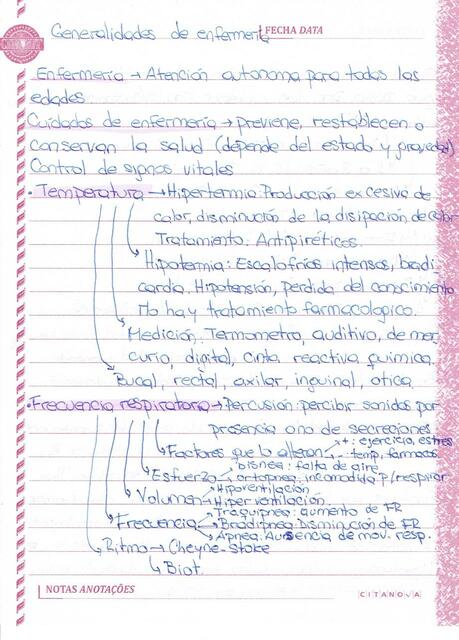 Generalidades de enfermería
FECHA DATA
Enfermería → Atención autonoma para todas las
edades.
Cuidados de enfermería → previene, restablecen o
conservan la salud (depende del estado y gravedad)
Control de signos vitales
• Temperatura → Hipertermia: Producción excesiva de
calor, disminución de la disipación de calor
Tratamiento: Antipiréticos.
Hipotermia: Escalofríos intensos, bradi
cardia, Hipotensión, perdida del conocimiento
No hay tratamiento farmacologico.
Medición: Termometro, auditivo, de mer
curio, digital, cinta reactiva química.
Bucal, rectal, axilar, inguinal, otica.
• Frecuencia respiratoria → Percusión: percibir sonidos por
presencia o no de secreciones
Factores que lo alteran → +: ejercicio, estres
→ -: temp, farmacos
Esfuerzo → Disnea: falta de aire
→ ortopnea: incomodida p/respirar
Volumen → Hipoventilación
→ Hiperventilación
Frecuencia → Traquipnea: aumento de FR
→ Bradipnea: Disminución de FR
→ Apnea: Ausencia de mov. resp.
Ritmo → Cheyne-Stoke
→ Biot.
NOTAS ANOTAÇÕES
CITANOVA